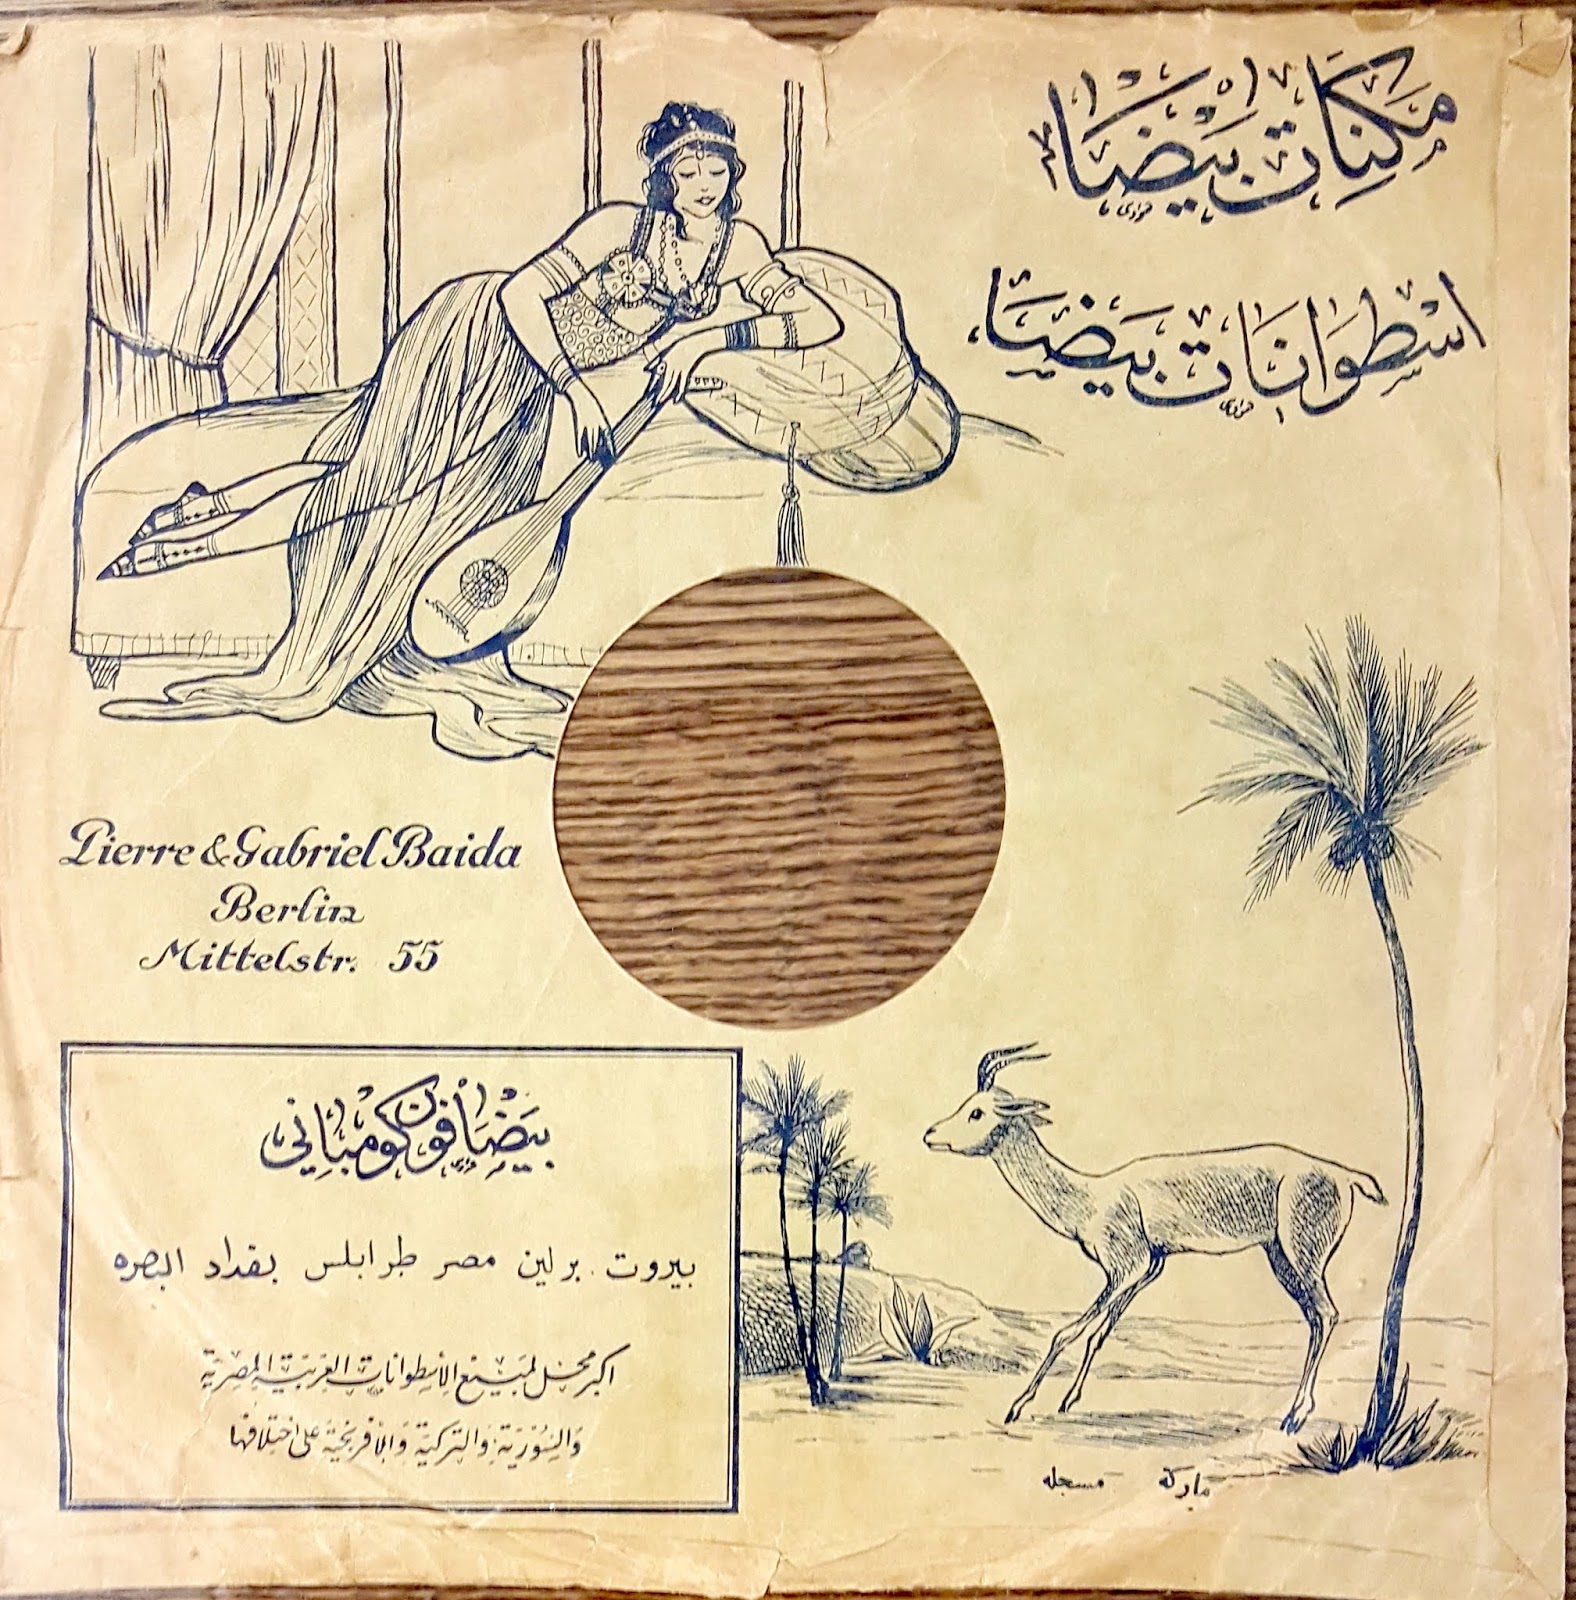 مكنات بيضا
اسطوانات بيضا
Pierre & Gabriel Baida
Berlin
Mittelstr. 55
بيضافون كومباني
بيروت برلين مصر طرابلس بغداد البصره
اكبر محل لمبيع الأسطوانات العربية المصرية
والسورية والتركية والافرنجية على اختلافها
ماركة مسجله